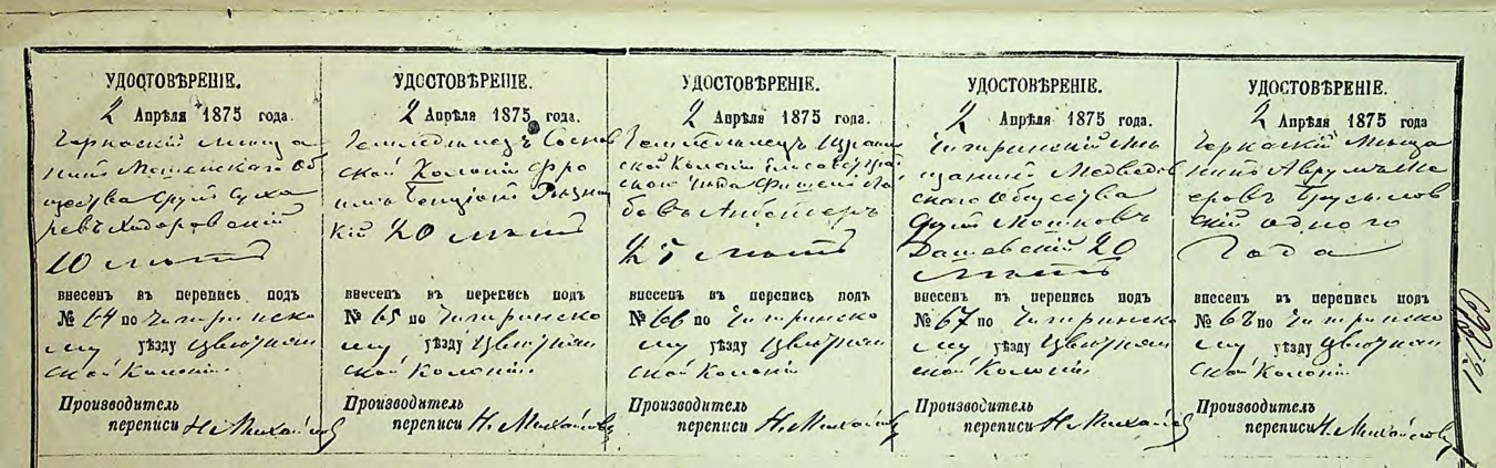 УДОСТОВѢРЕНІЕ.
2 Апрѣля 1875 года.
Черкаскій мѣща
нинъ Мошенскаго об
щества Сруль Суха
ревъ Ходоровскій
10 лѣтъ
внесенъ въ перепись подъ
№ 64 по Чигиринско
му уѣзду Цвѣтнян
ской Колоніи
Производитель
переписи Н. Михайловъ
УДОСТОВѢРЕНІЕ.
2 Апрѣля 1875 года.
Земледѣлецъ
ской Колоніи
кій 20 лѣтъ
внесенъ въ перепись подъ
№ 65 по Чигиринско
му уѣзду Цвѣтнян
ской Колоніи.
Производитель
переписи Н. Михайловъ
УДОСТОВѢРЕНІЕ.
2 Апрѣля 1875 года.
Земледѣлецъ Израиль
ской Колоніи Елисаветград
скаго уѣзда
25 лѣтъ
внесенъ въ перепись подъ
№ 66 по Чигиринско
му уѣзду Цвѣтнян
ской Колоніи
Производитель
переписи Н. Михайловъ
УДОСТОВѢРЕНІЕ.
2 Апрѣля 1875 года.
Чигиринскій мѣ
щанинъ Медведов
скаго общества
Сруль Мошковъ
Дашевскій 20
лѣтъ
внесенъ въ перепись подъ
№ 67 по Чигиринско
му уѣзду Цвѣтнян
ской Колоніи.
Производитель
переписи Н. Михайловъ
УДОСТОВѢРЕНІЕ.
2 Апрѣля 1875 года
Черкаскій мѣща
нинъ Аврумъ Ме
еровъ Брусилов
скій одного
года
внесенъ въ перепись подъ
№ 68 по Чигиринско
му уѣзду Цвѣтнян
ской Колоніи.
Производитель
переписи Н. Михайловъ